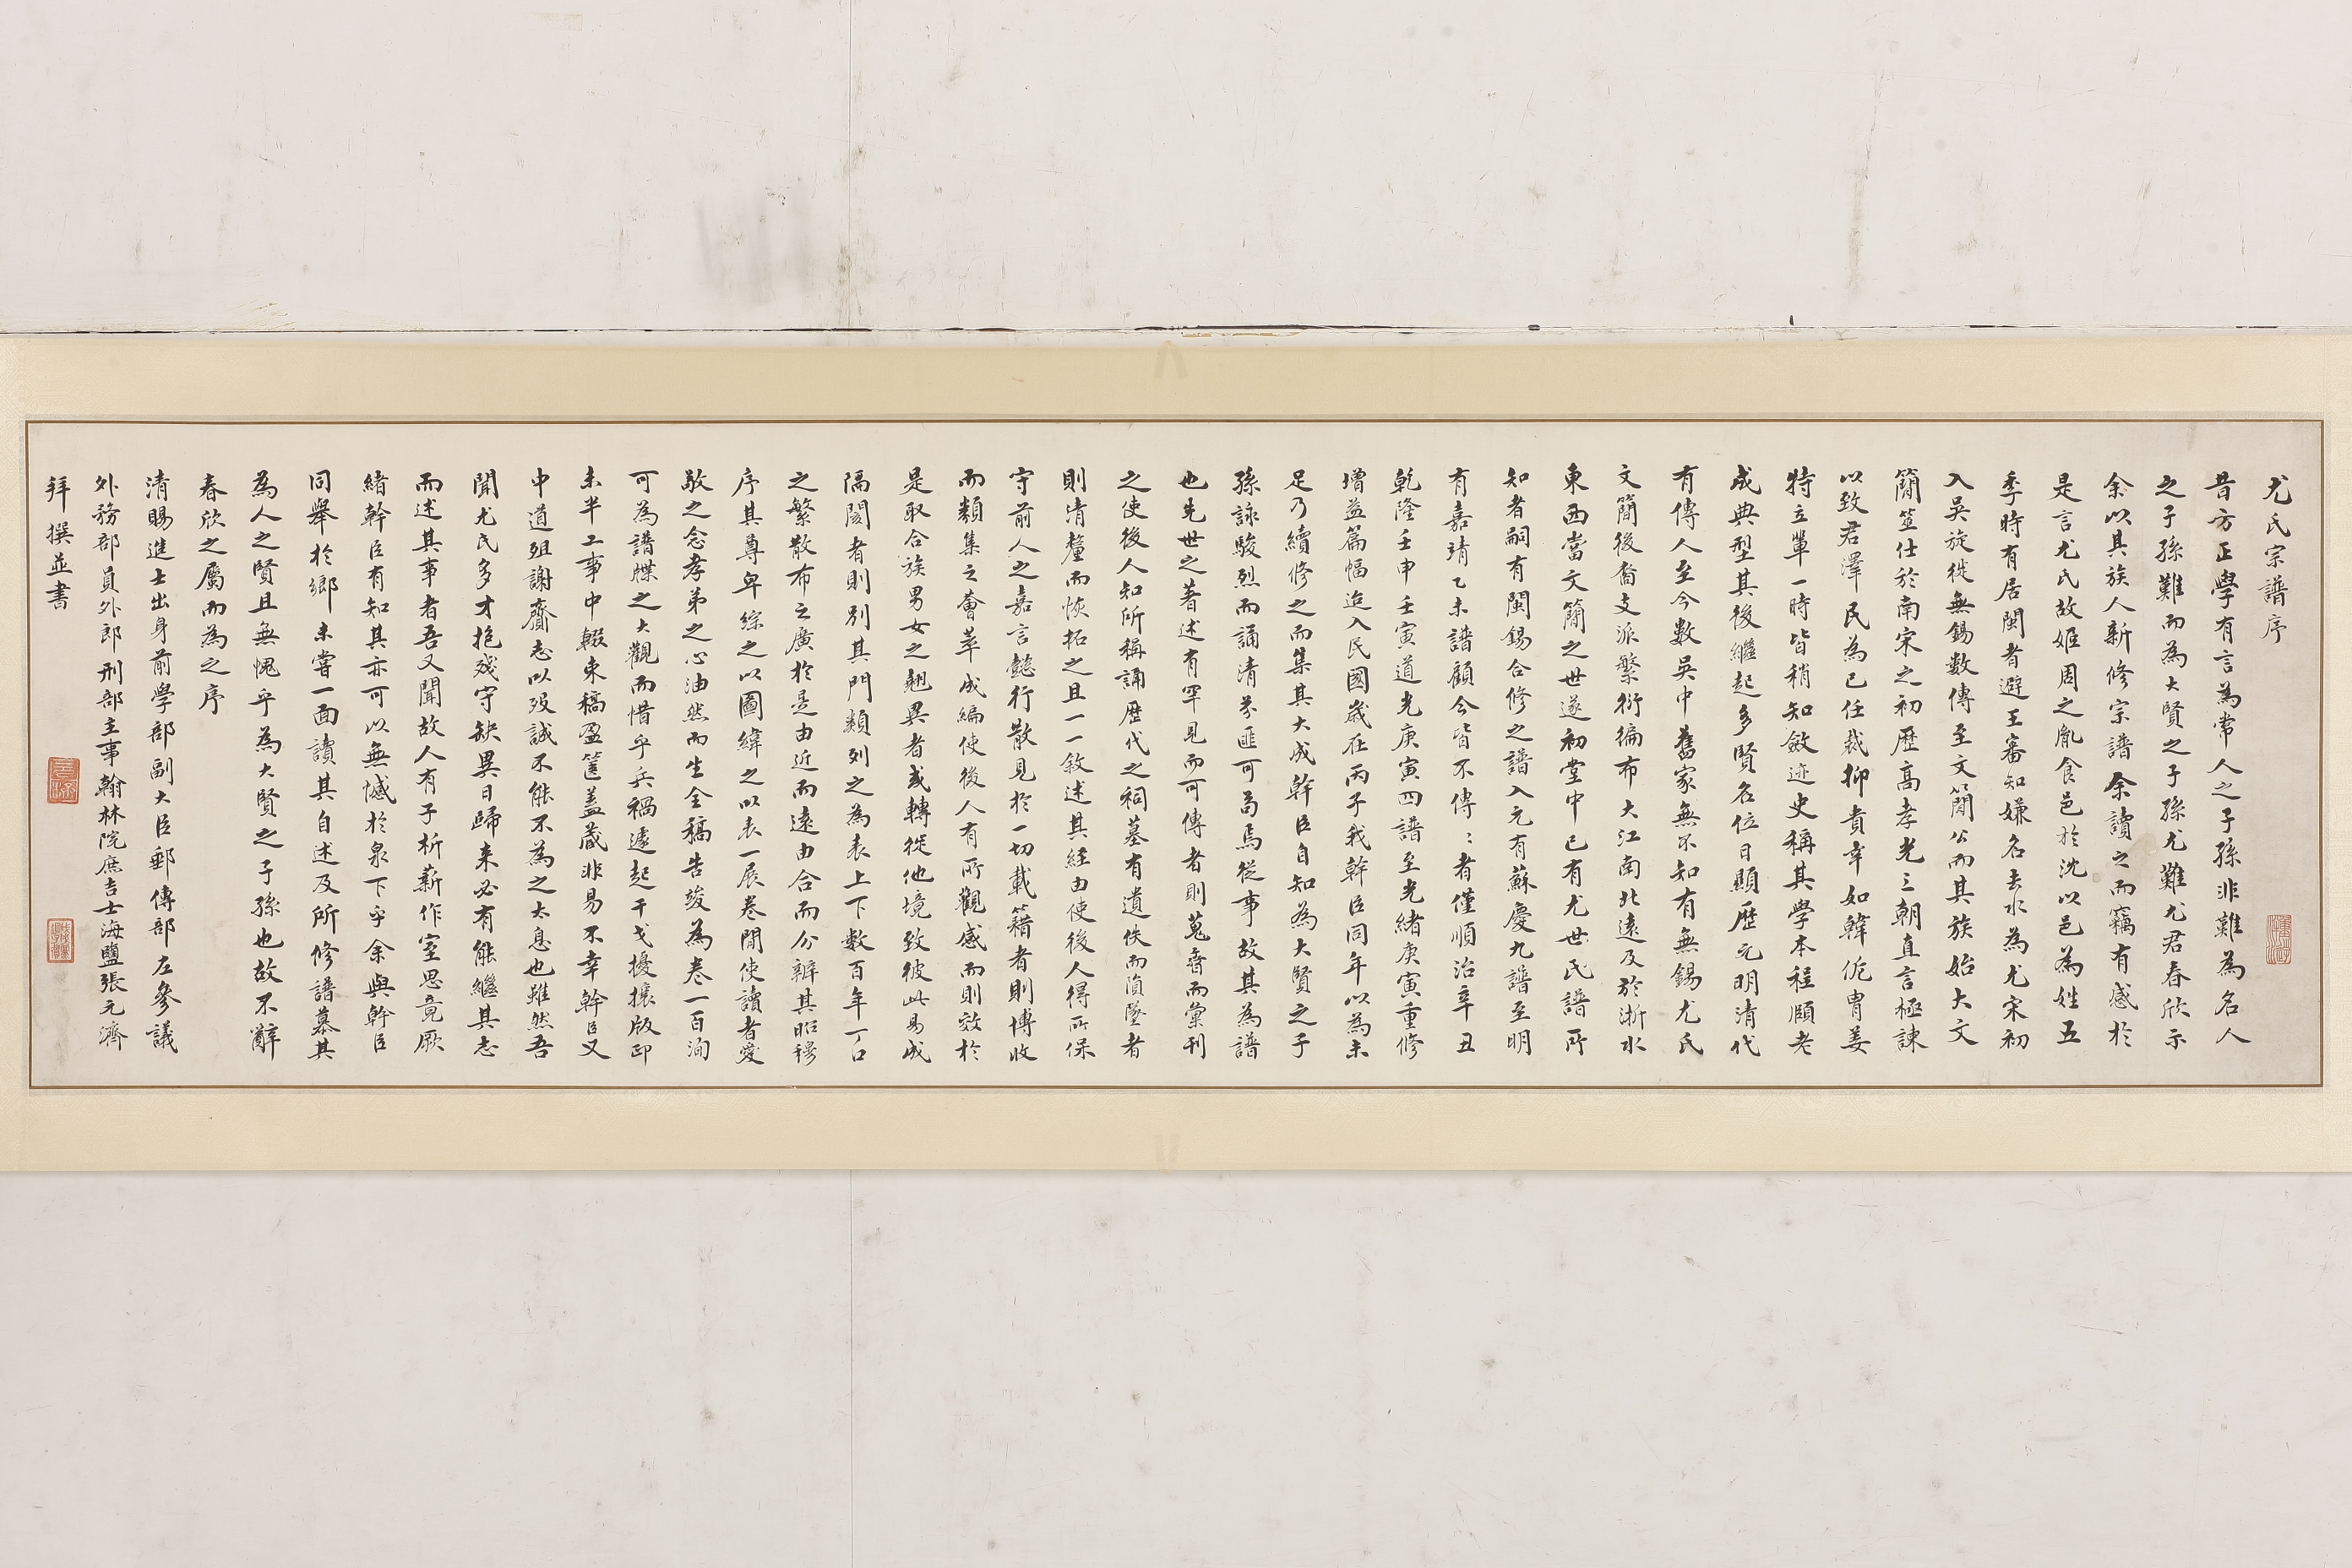 尤氏宗譜序
昔方正學有言為常人之子孫非難為名人
之子孫難而為大賢之子孫尤難尤君春欣示
余以其族人新修宗譜余讀之而竊有感於
是言尤氏故姬周之胤食邑於沈以邑為姓五
季時有居閩者避王審知嫌名去水為尤宋初
入吳旋徙無錫數傳至文簡公而其族始大文
簡筮仕於南宋之初歷高孝光三朝直言極諫
以致君澤民為己任裁抑貴幸如韓侂冑姜
特立軰一時皆稍知斂迹史稱其學本程頤老
成典型其後繼起多賢名位日顯歷元明清代
有傳人至今數吳中舊家無不知有無錫尤氏
文簡後裔支派繁衍徧布大江南北遠及於浙水
東西當文簡之世遂初堂中已有尤世氏譜所
知者嗣有閩錫合修之譜入元有蘇慶九譜至明
有嘉靖乙未譜顧今皆不傳〻者僅順治辛丑
乾隆壬申壬寅道光庚寅四譜至光緒庚寅重修
增益篇幅迨入民國嵗在丙子我幹臣同年以為未
足乃續修之而集其大成幹臣自知為大賢之子
孫詠駿烈而誦清芬匪可苟焉從事故其為譜
也先世之著述有罕見而可傳者則蒐齎而彙刊
之使後人知所稱誦歷代之祠墓有遺佚而湏墜者
則清釐而恢拓之且一一敘述其経由使後人得所保
守前人之嘉言懿行散見於一切載籍者則博收
而類集之薈萃成編使後人有所觀感而則效於
是取合族男女之翹異者或轉徙他境致彼此易成
隔閡者則別其門類列之為表上下數百年丁口
之繁散布之廣於是由近而遠由合而分辨其昭穆
序其尊卑綜之以圖緯之以表一展卷間使讀者愛
敬之念孝弟之心油然而生全稿告竣為卷一百洵
可為譜牒之大觀而惜乎兵禍遽起干戈擾攘版印
未半工事中輟束稿盈筐蓋蕆非易不幸幹臣又
中道殂謝齎志以歿誠不能不為之太息也雖然吾
聞尤氏多才抱殘守缺異日歸来必有能繼其志
而述其事者吾又聞故人有子析薪作室思竟厥
緒幹臣有知其亦可以無憾於泉下乎余與幹臣
同舉於鄉未嘗一面讀其自述及所修譜慕其
為人之賢且無愧乎為大賢之子孫也故不辭
春欣之屬而為之序
清賜進士出身前學部副大臣郵傳部左參議
外務部員外郎刑部主事翰林院庶吉士海鹽張元濟
拜撰並書